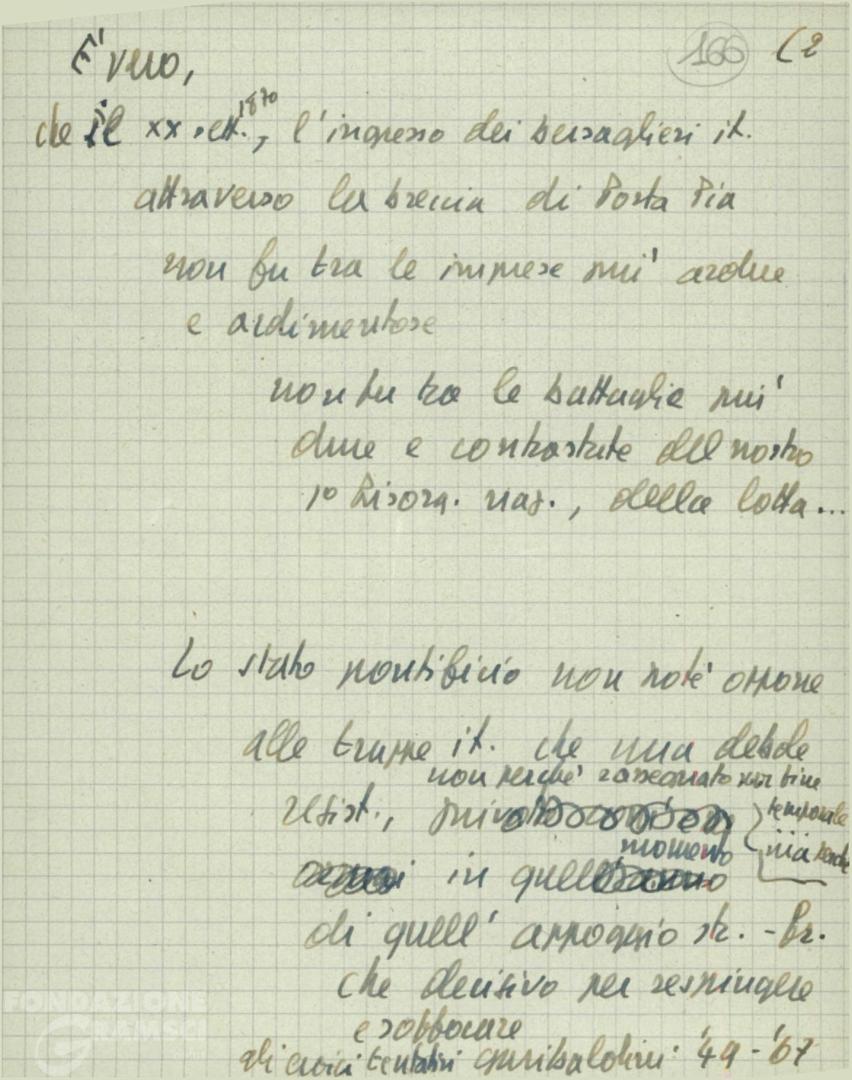 166 (2
E' vero,
che il XX sett. 1870, l'ingresso dei bersaglieri it.
attraverso la breccia di Porta Pia
non fu tra le imprese più ardue
e ardimentose
non fu tra le battaglie più
dure e contrastate del nostro
1º Risorg. naz., della lotta...
Lo stato pontificio non poté opporre
alle truppe it. che una debole
non perché rassegnato fine
resist., privo temporale
momento ma perché
in quel
di quell'appoggio str. - fr.
che decisivo per respingere
e soffocare
gli eroici tentativi garibaldini '49 - '67
FONDAZIONE
GRAMSCI